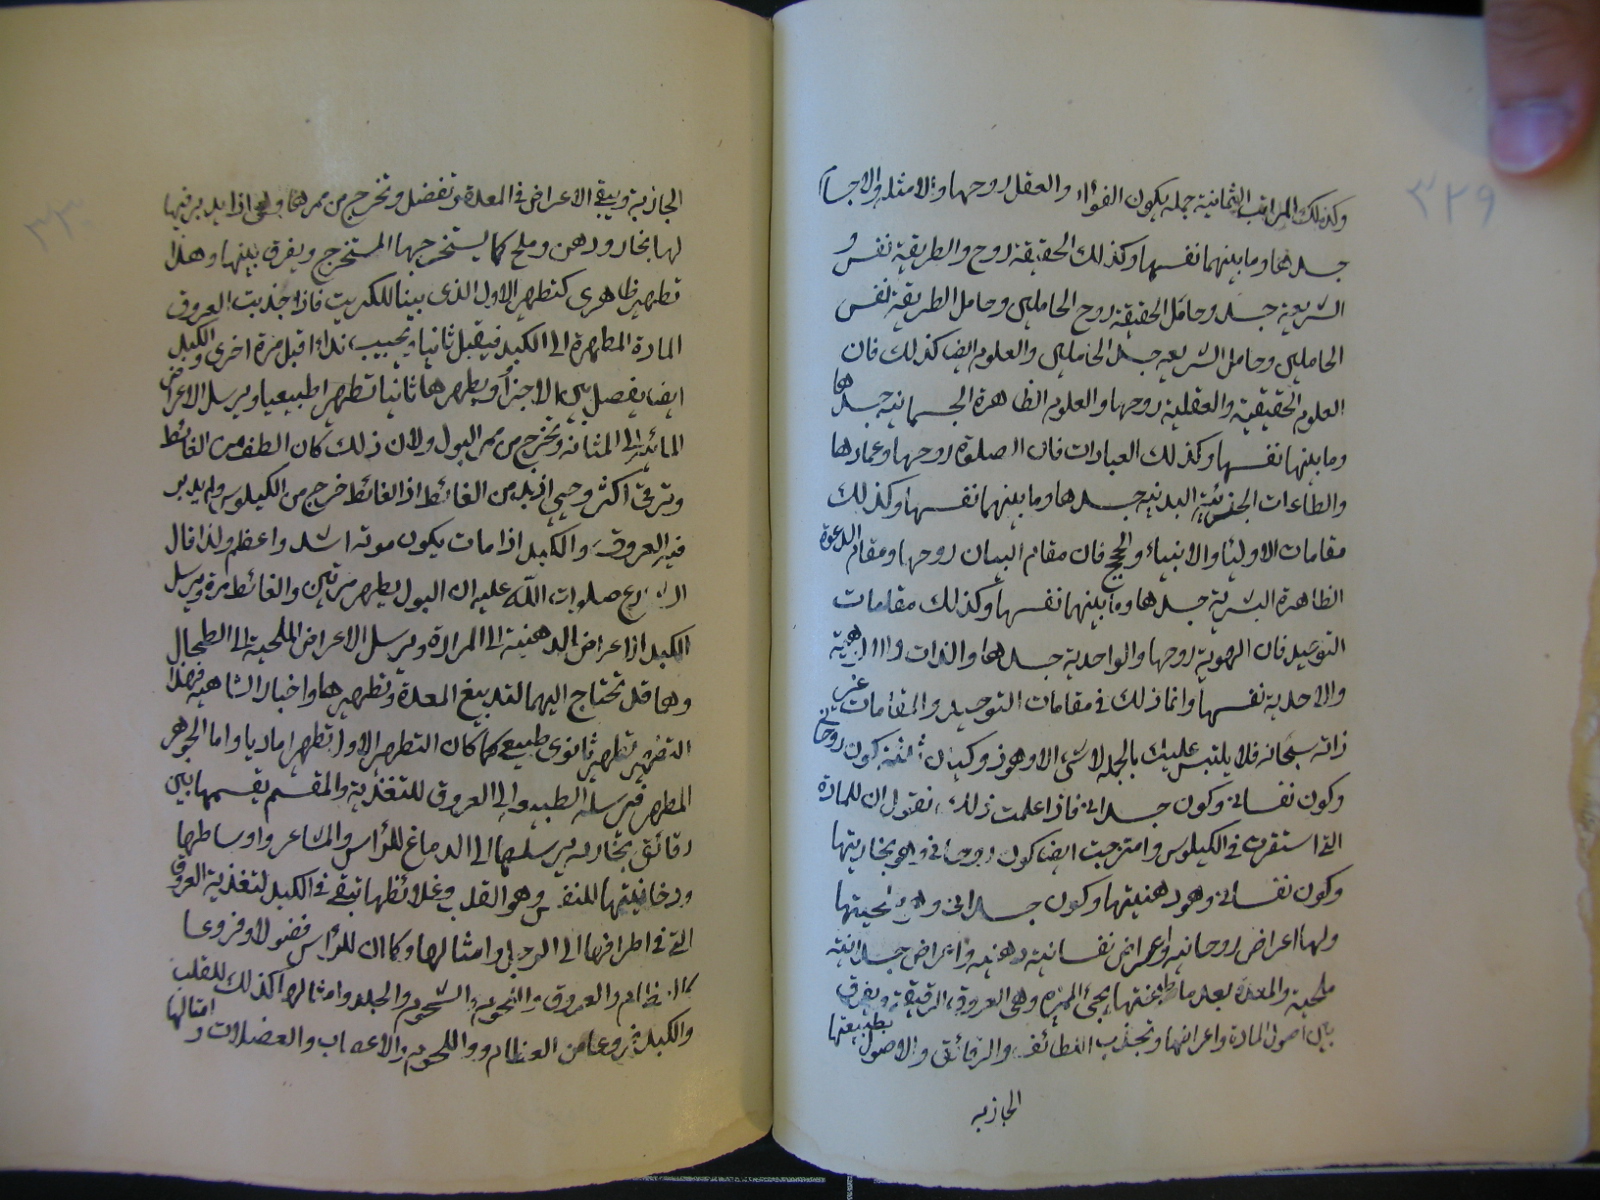 ٣٢٩
وكذلك المراتب الثمانية جملة يكون الفؤاد والعقل روحها والامثلة والاجسام
جسدها وما بينهما نفسها وكذلك الحقيقة روح والطريقة نفس و
الشريعة جسد وحامل الحقيقة روح الحاملين وحامل الطريقة نفس
الحاملين وحامل الشريعة جسد الحاملين والعلوم ايضا كذلك فان
العلوم الحقيقية والعقلية روحها والعلوم الظاهرة الجسمانية جسدها
وما بينها نفسها وكذلك العبادات فان الصلوة روحها وعمادها
والطاعات الجزئية البدنية جسدها وما بينهما نفسها وكذلك
مقامات الاولياء والانبياء والحجج فان مقام البيان روحها ومقام الدعوة
الظاهرة البشرية جسدها وما بينهما نفسها وكذلك مقامات
التوحيد فان الهوية روحها والواحدية جسدها والذات والالهية
والاحدية نفسها وانما ذلك في مقامات التوحيد والمقامات غير
ذاته سبحانه فلا يلتبس عليك بالجملة لا شئ الا وهو ذو كيان ثلثة كون روحاني
وكون نفساني وكون جسداني فاذا علمت ذلك فنقول ان للمادة
التي استقرت في الكيلوس وامتزجت ايضا كون روحاني وهو بخاريتها
وكون نفساني وهو دهنيتها وكون جسداني وهو ملحيتها
ولها اعراض روحانية واعراض نفسانية دهنية واعراض جسدانية
ملحية والمعدة بعد ما طبختها يجئ المميزة وهي العروق الرقيقة ويفرق
بين اصول المادة واعراضها وتجذب اللطائف والرقائق والاصول بطبيعتها
الجاذبة
٣٣٠
الجاذبة ويبقى الاعراض في المعدة وتفضل وتخرج من ممرها وهي اذا يدبر فيها
لها بخار ودهن وملح كما يستخرجها المستخرج ويفرق بينها وهذا
تطهير ظاهري كتطهير الاول الذي بينا للكبريت فاذا جذبت العروق
المادة المطهرة الى الكبد فيقبل ثانيا ويجيب نداء اقبل مرة اخرى والكبد
ايضا يفصل بين الاجزاء ويطهرها ثانيا تطهيرا طبيعيا ويرسل الاعراض
المائية الى المثانة وتخرج من ممر البول ولان ذلك كان الطف من الغائط
وترقى اكثر وحيي ازيد من الغائط اذ الغائط خرج من الكيلوس ولم يدبر
فيه العروق والكبد اذا مات يكون موته اشد واعظم ولذا قال
الشارع صلوات الله عليه ان البول يطهر مرتين والغائط مرة ويرسل
الكبد اذا عراض الدهنية الى المرارة ويرسل الاعراض الملحية الى الطحال
وهما قد تحتاج اليهما لتدبيغ المعدة وتطهيرها واخبار الشاهية فهذا
التطهير تطهير ثانوي طبيعي كما كان التطهير الاول تطهيرا ماديا واما الجوهر
المطهر فيرسله الطبيعة الى العروق للتغذية والمقسم يقسمها بين
رقائق بخارية يرسلها الى الدماغ للرأس والمشاعر واوساطها
ودخانيتها للنفس وهو القلب وغلائظها تبقى في الكبد لتغذية العروق
التي في اطرافها الى الرجل وامثالها وكما ان للرأس فضولا وفروعا
كالعظام والعروق والشحوم والجلد وامثالها كذلك للقلب
والكبد فروعا من العظام واللحوم والاعصاب والعضلات وامثالها